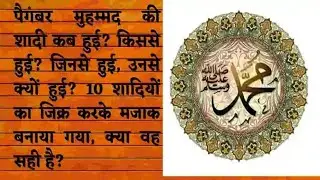 पैगंबर मुहम्मद की
शादी कब हुई? किससे
हुई? जिनसे हुई, उनसे
क्यों हुई? 10 शादियों
का जिक्र करके मजाक
बनाया गया, क्या वह
सही है?
محمد
صلى الله عليه وسلم